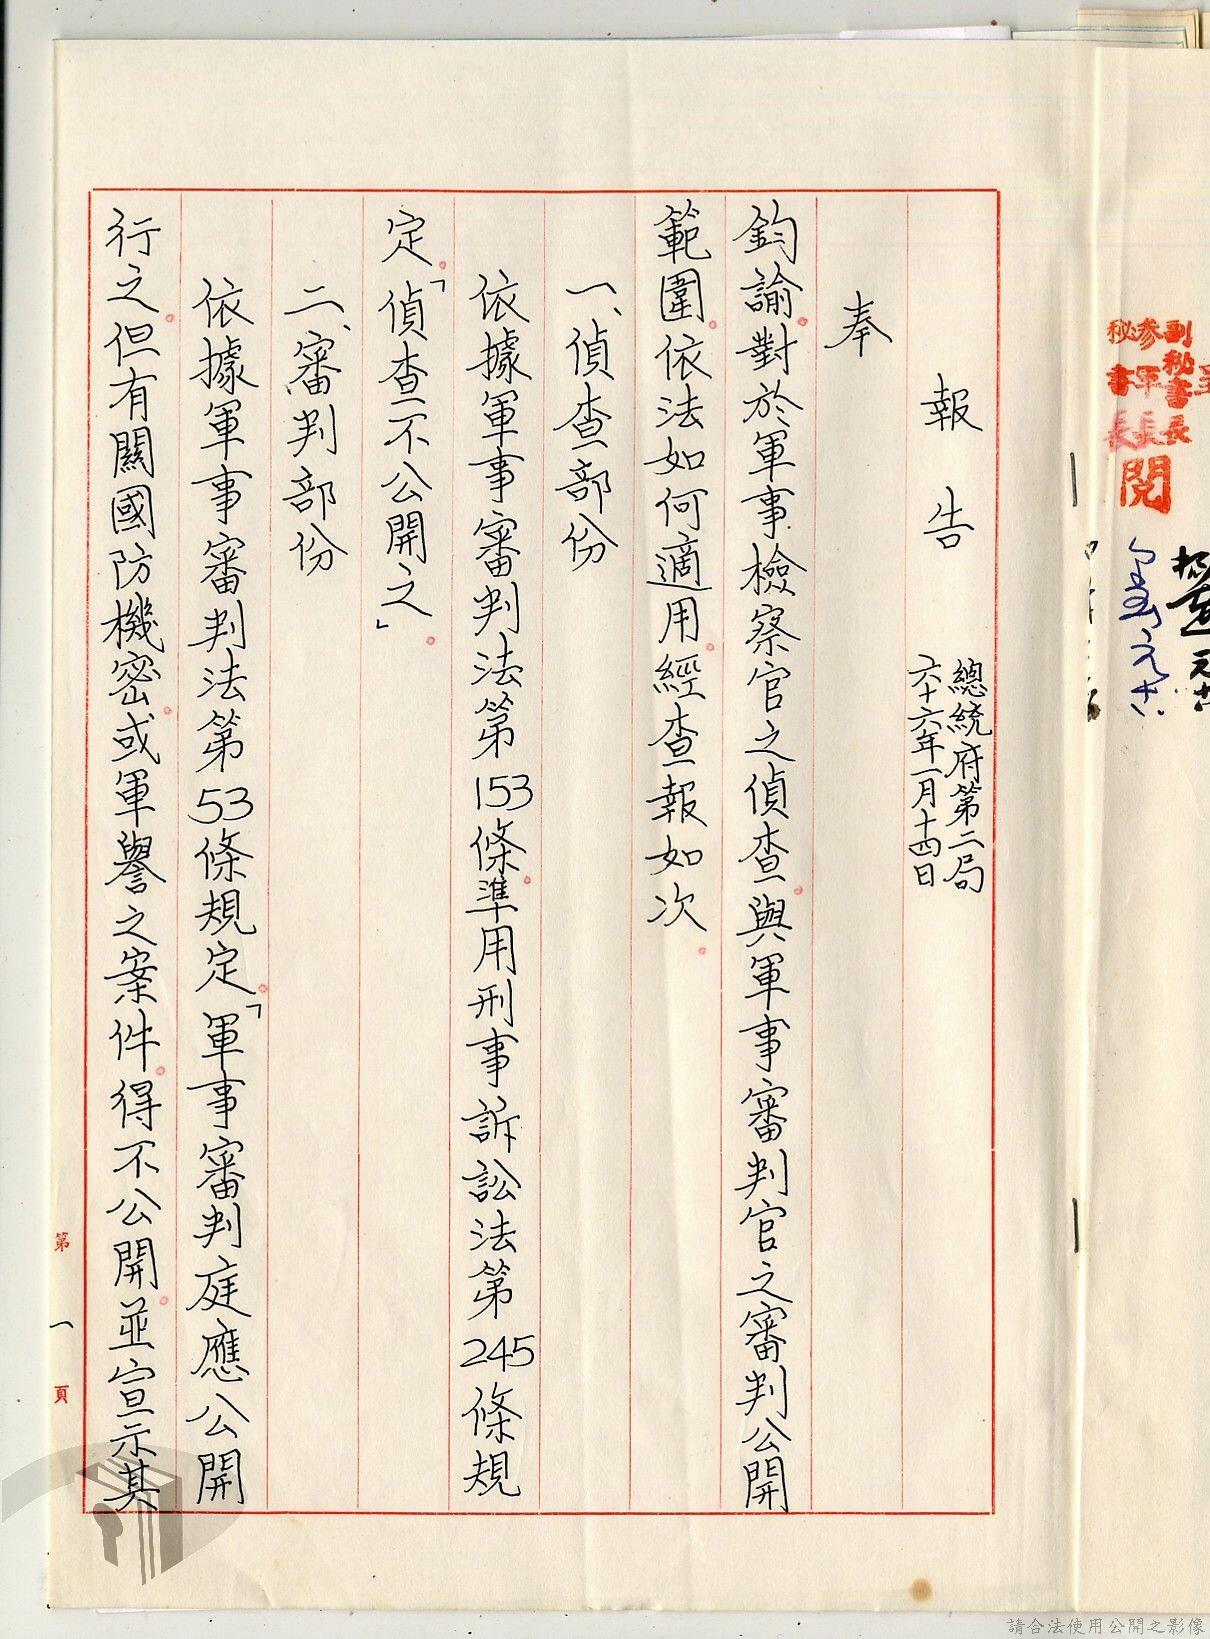 副秘書長
參軍長
秘書長
閱
報告
總統府第二局
六十六年一月十四日
奉
鈞諭。對於軍事檢察官之偵查。與軍事審判官之審判公開
範圍。依法如何適用。經查報如次。
一、偵查部份
依據軍事審判法第153條。準用刑事訴訟法第245條規
定。「偵查不公開之」。
二、審判部份
依據軍事審判法第53條規定。「軍事審判庭應公開
行之。但有關國防機密。或軍譽之案件。得不公開。並宣示其
第一頁
請合法使用公開之影像